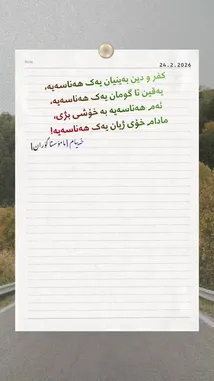 24.2.2026
کفر و دین بەینیان یەک هەناسەیە،
یەقین تا گومان یەک هەناسەیە،
ئەم هەناسەیە بە خۆشی بژی،
مادام خۆی ژیان یەک هەناسەیە!
خەییام |مامۆستا گۆران|